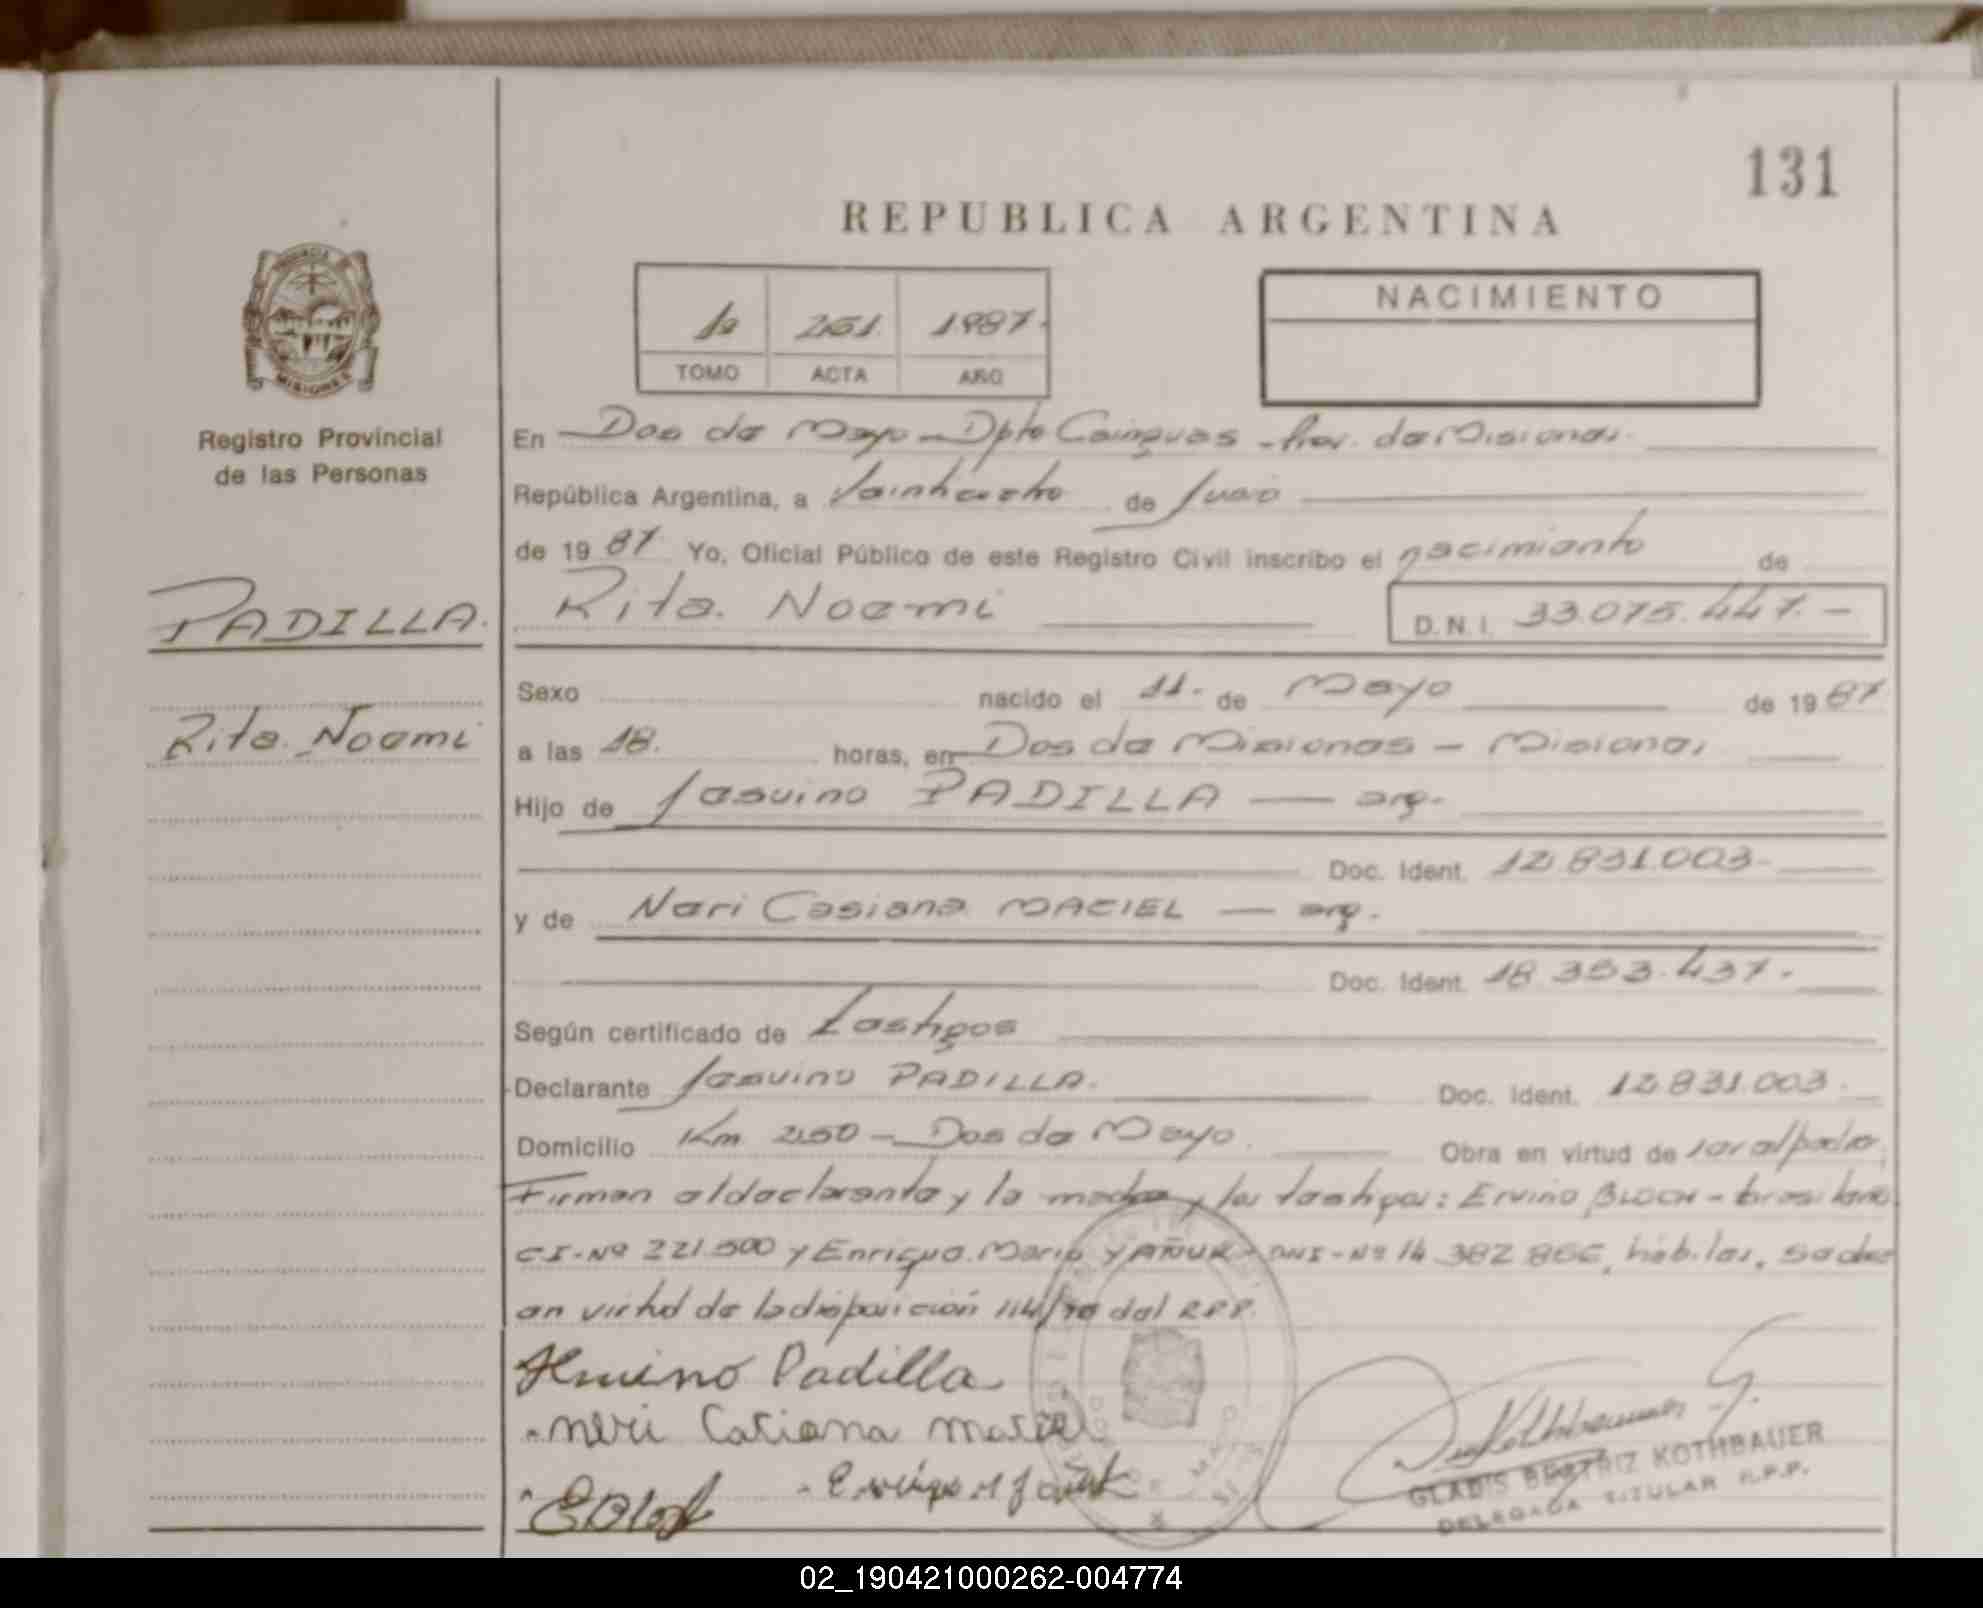 131
REPUBLICA ARGENTINA
1º 251. 1987.
TOMO ACTA AÑO
NACIMIENTO
MISIONES
Registro Provincial
de las Personas
En Dos de Mayo - Dpto Cainguas - Prov. de Misiones.
República Argentina, a Veinticuatro de Junio
de 1987. Yo, Oficial Público de este Registro Civil inscribo el nacimiento de
PADILLA.
Rita. Noemi D.N.I. 33.075.447. -
Sexo nacido el 11. de Mayo de 1987
Rita. Noemi
a las 18. horas, en Dos de Misiones - Misiones
Hijo de Jesuino PADILLA - arg.
Doc. Ident. 12.831.003-
y de Neri Casiana MACIEL - arg.
Doc. Ident. 18 353.437.
Según certificado de Testigos
Declarante Jesuino PADILLA. Doc. Ident. 12.831.003.
Domicilio Km. 250 - Dos de Mayo. Obra en virtud de ser el padre.
Firman el declarante y la madre y los testigos: Ervino BLOCH - brasilero
CI-Nº 221.500 y Enrique. Mario YAÑUK - DNI-Nº 14 382 866, hábiles,
en virtud de la disposición 114/70 del RPP.
Padilla
Neri Casiana Maciel
GLADIS BEATRIZ KOTHBAUER
DELEGADA TITULAR R.P.P.
02_190421000262-004774